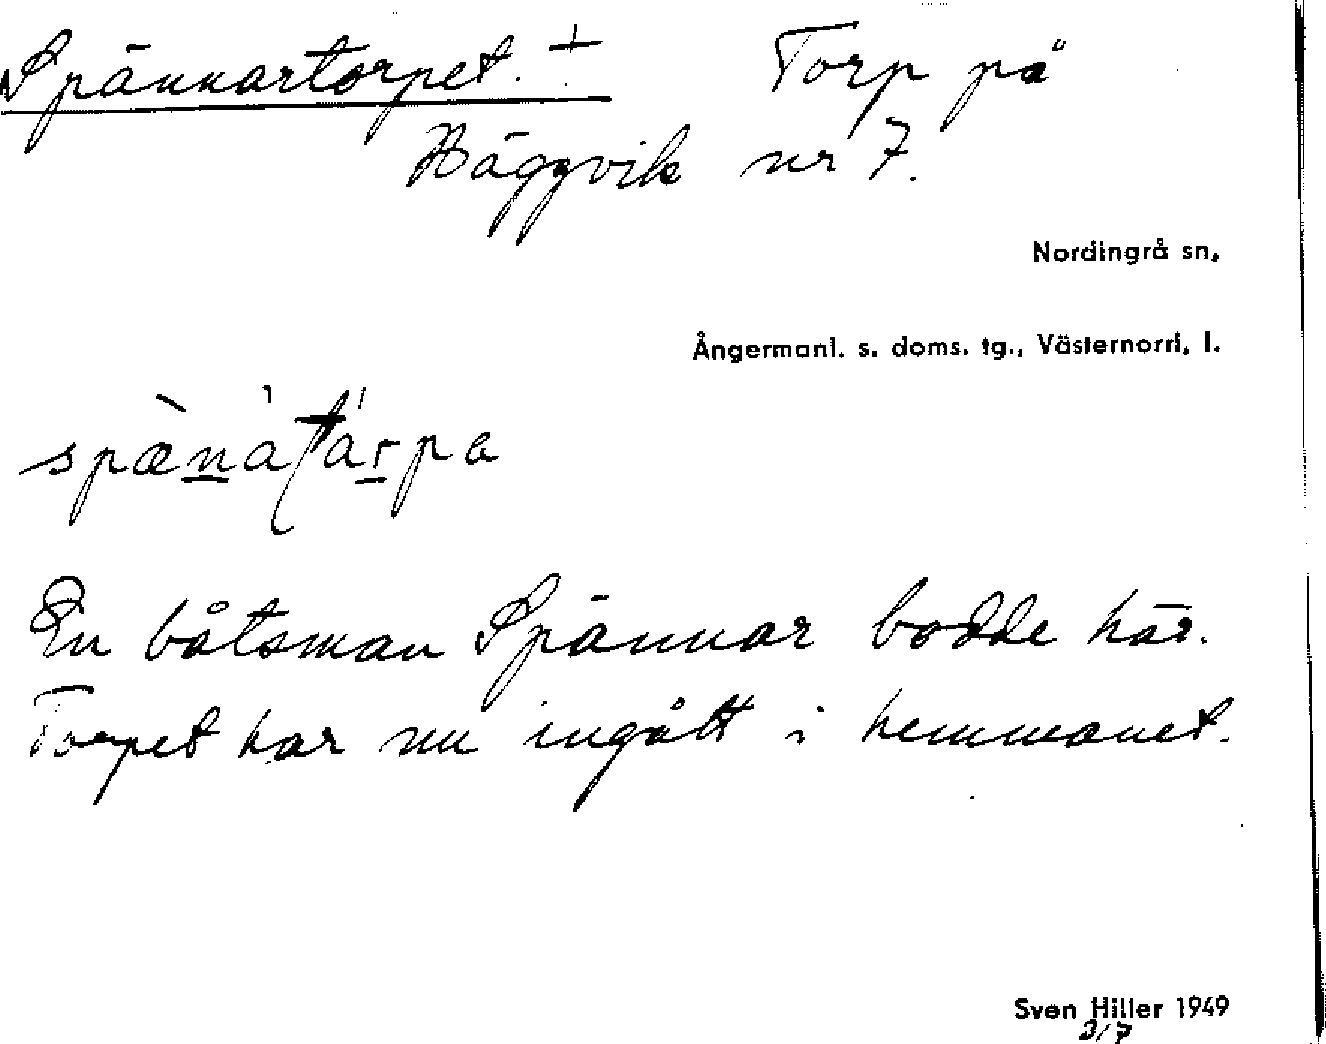 Spännartorpet. + Torp på
Häggvik nr 7.
Nordingrå sn,
Ångermanl. s. doms. tg., Västernorrl. l.
spænatarpa
En båtsman Spännar bodde här.
Torpet har nu ingått i hemmanet.
Sven Hiller 1949
3/7